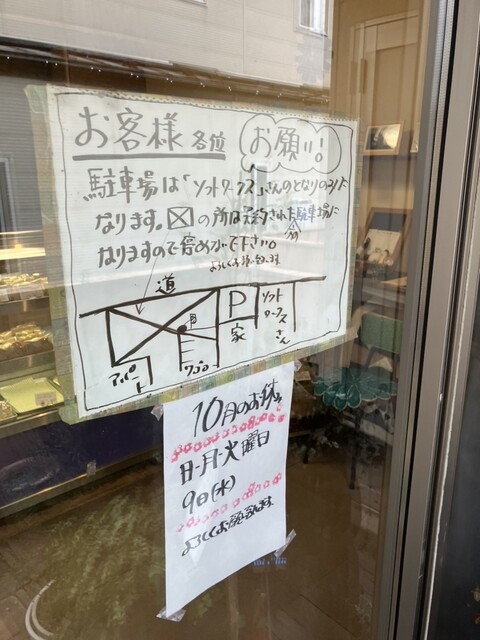 お客様 各位
お願い!
駐車場は「ソフトワークス」さんのとなりのみに
なります。☒の所は予約された駐車場に
なりますので停めないで下さい。
よろしくお願い致します。
道
P
家
ソフト
ワークス
さん
アパート
10月のお休み
日・月・火曜日
9日(水)
よろしくお願い致します。